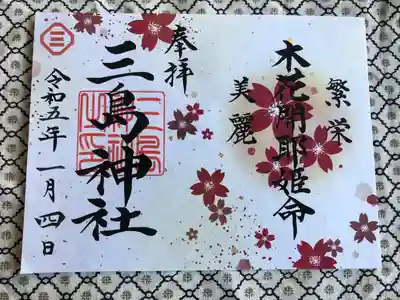 繁栄
木花開耶姫命
美麗
奉拝
三島神社
三島神社之印
令和五年一月四日